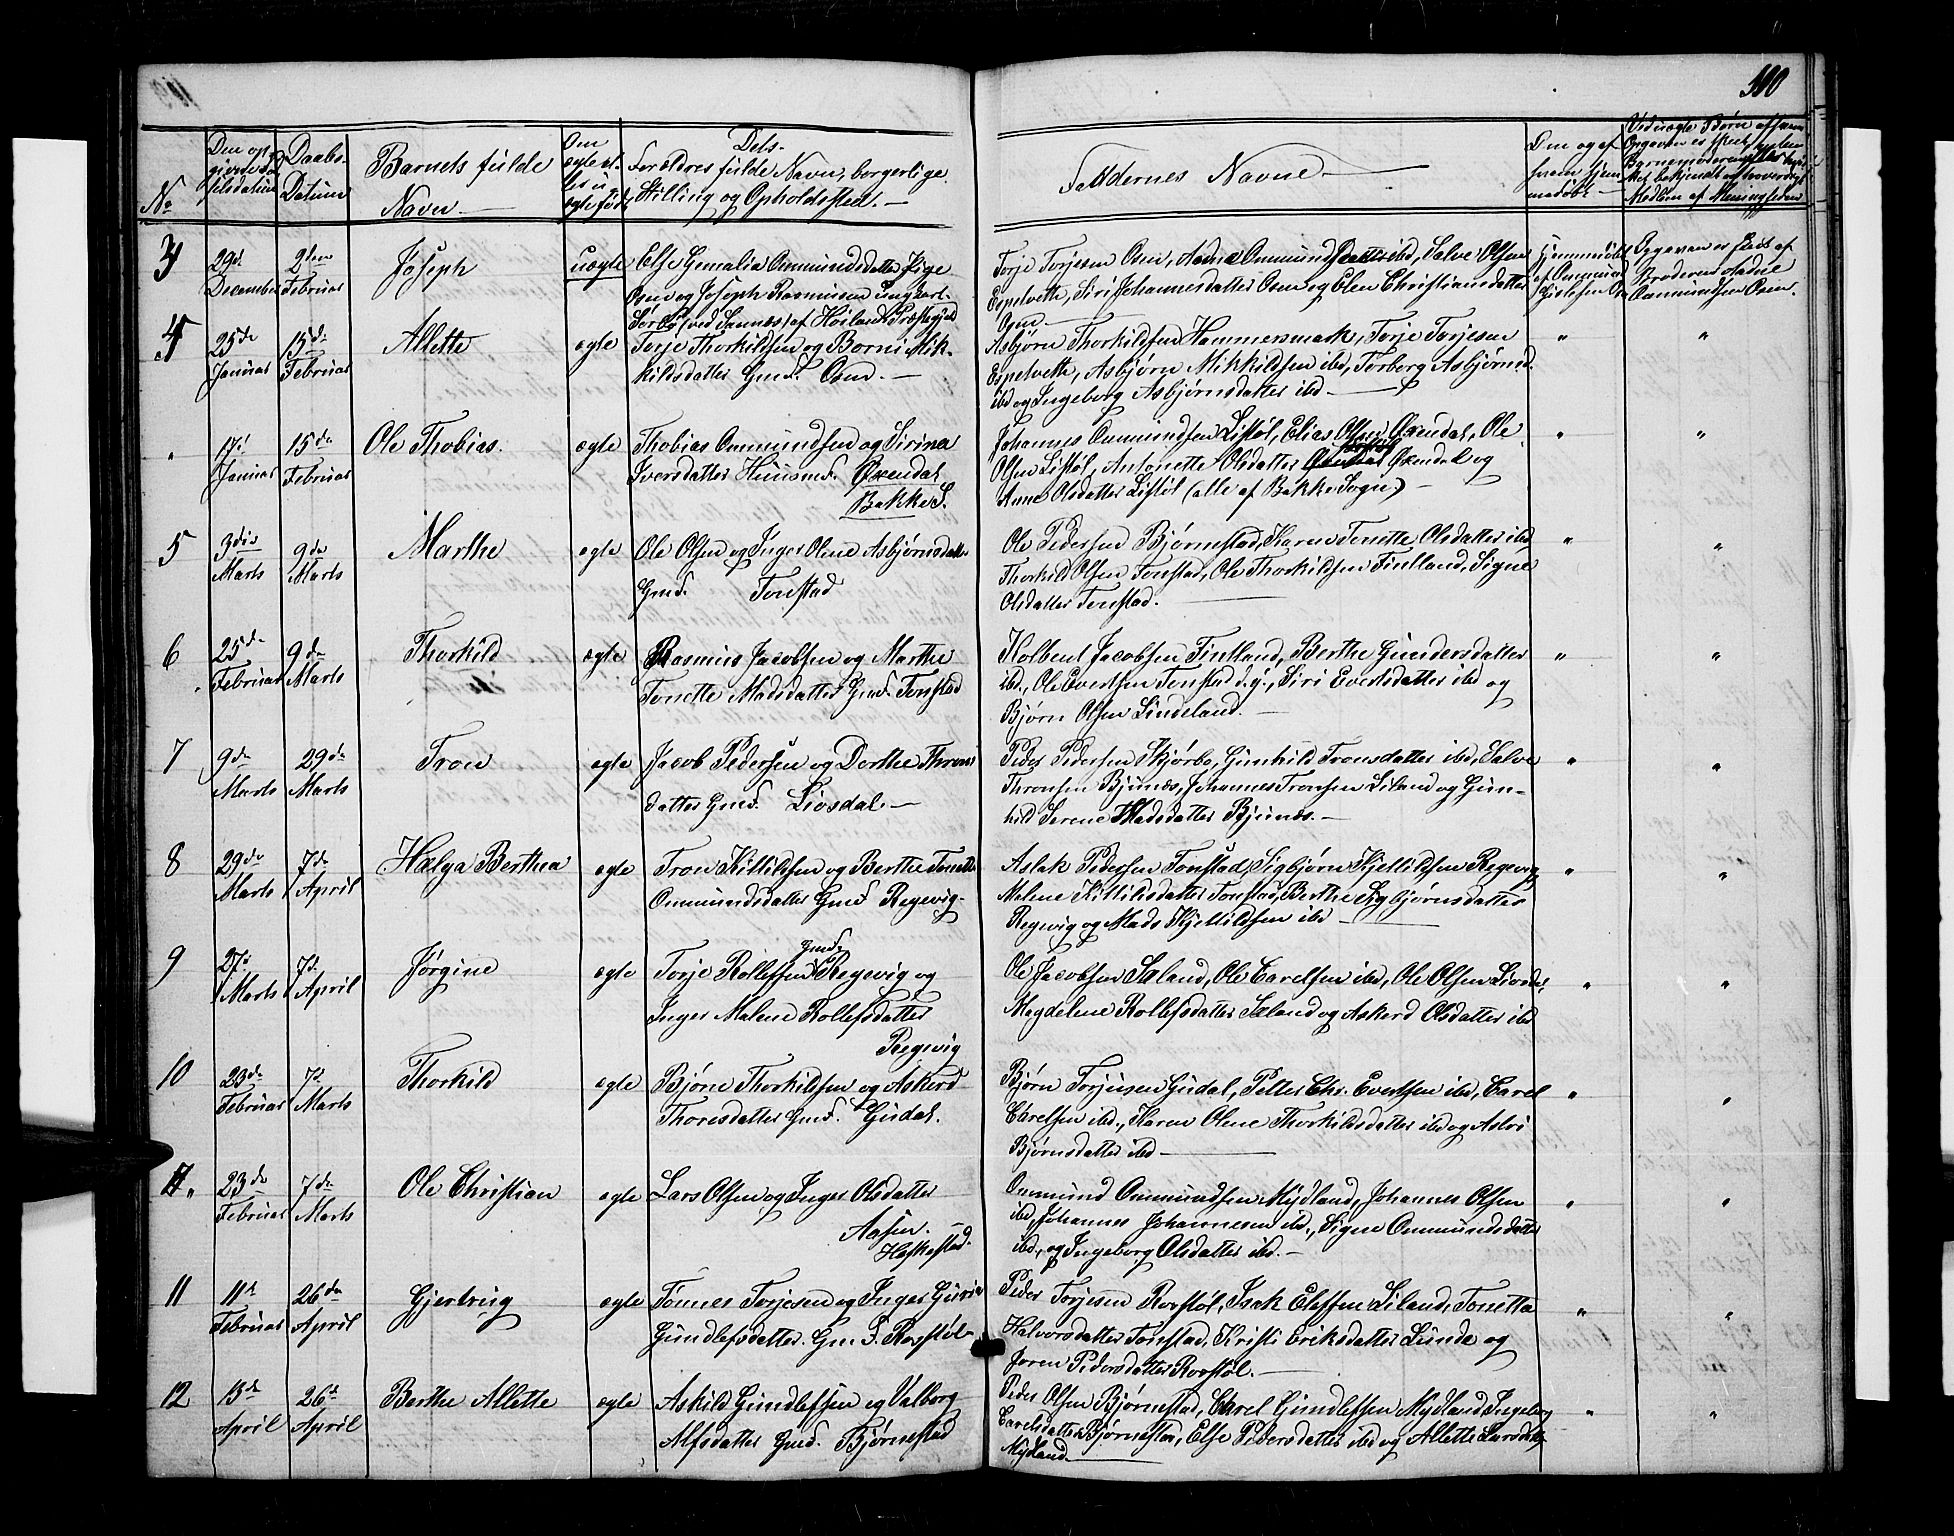 100
No
Den op-
givne Fød-
selsdatum
Daabs-
Datum
Barnets fulde
Navn.
Om
ægte el-
ler u-
ægte født
Dets
Forældres fulde Navn, borgerlige
Stilling og Opholdssted.
Faddernes Navne.
Om og af
hvem hjem-
medøbt
Ved uægte Børn
Opgaven er skeet
Barnemoderen eller
bekjendt og troværdigt
Medlem af Menigheden
3
29de
December
2den
Februar
Joseph
uægte
Else Gemalia Ommundsdatter Pige
Osen og Joseph Rasmussen Ungkarl
Sørbø (ved Sannæs) af Høilands Præstegjeld
Torje Torjesen Osen, Aadne Ommundsen ibd, Salve Olsen
Espetvett, Siri Johannesdatter Osen og Elen Christiansdatter
Osen
Hjemmedøbt
af Ommund
Gislesen Osen
Opgaven er skeet af
Broderen Aadne
Ommundsen Osen.
4
25de
Januar
15de
Februar
Allette
ægte
Torje Thorkildsen og Borni Mik-
kildsdatter Gmd. Osen.
Asbjørn Thorkildsen Hammersmark, Torje Torjesen
Espetvett, Asbjørn Mikkildsen ibd, Torborg Asbjørnsd.
ibd og Ingeborg Asbjørnsdatter ibd
"
"
"
17
Januar
15de
Februar
Ole Thobias.
ægte
Thobias Ommundsen og Sirina
Iversdatter Huusmd. Øxendal
Bakke S.
Johannes Ommundsen Listøl, Elias Olsen Øxendal, Ole
Olsen Listøl, Antonette Olsdatter Øxendal og
Anne Olsdatter Listøl (alle af Bakke Sogn.)
"
"
5
3die
Marts
9de
Marts
Marthe
ægte
Ole Olsen og Inger Olene Asbjørnsdatter
Gmd. Tonstad
Ole Pedersen Bjørnestad, Karen Tonette Olsdatter ibd,
Thorkild Olsen Tonstad, Ole Thorkildsen Fintland, Signe
Olsdatter Tonstad.
"
"
6
25de
Februar
9de
Marts
Thorkild
ægte
Rasmus Jacobsen og Marthe
Tonette Madsdatter Gmd. Tonstad
Kolbent Jacobsen Fintland, Berthe Gundersdatter
ibd., Ole Evertsen Tonstad d.y., Siri Evertsdatter ibd og
Bjørn Olsen Lindeland.
"
"
7
9de
Marts
29de
Marts
Tron
ægte
Jacob Pedersen og Dorthe Throns
datter Gmd. Liosdal.
Peder Pedersen Skjørbo, Gunhild Tronsdatter ibd, Salve
Thronsen Bjunæs, Johannes Tronsen Liland og Gun-
hild Serene Madsdatter Bjunæs.
"
"
8
29de
Marts
7de
April
Hælga Berthea
ægte
Tron Kittildsen og Berthe Tonette
Ommundsdatter Gmd. Regevig.
Aslak Pedersen Tonstad, Sigbjørn Kjettildsen Regevig
Malene Kittildsdatter Tonstad, Berthe Sigbjørnsdatter
Regevig og Mads Kjettildsen ibd
"
"
9
27de
Marts
7de
April
Jørgine
ægte
Torje Rollefsen Gmd. Regevig og
Inger Malene Rollefsdatter
Regevig
Ole Jacobsen Saland, Ole Carelsen ibd, Ole Olsen Liosdal,
Magdelene Rollefsdatter Sæland og Askerd Olsdatter ibd
"
"
10
23de
Februar
7de
Marts
Thorkild
ægte
Bjørn Thorkildsen og Askerd
Thoresdatter Gmd. Gudal.
Bjørn Torjusen Gudal, Petter Chr. Evertsen ibd, Carel
Carelsen ibd., Karen Olene Thorkildsdatter ibd og Aslri
Bjørnsdatter ibd
"
"
"
23de
Februar
7de
Marts
Ole Christian
ægte
Lars Olsen og Inger Olsdatter
Aasen.
Heskestad.
Ommund Ommundsen Mydland, Johannes Olsen
ibd, Johannes Johannesen ibd., Signe Ommundsdatter
ibd., og Ingeborg Olsdatter ibd.
"
"
11
11te
Februar
26de
April
Gjertrug
ægte
Tønnes Torjesen og Inger Gurie
Gundlefsdatter. Gmd. Rovstøl
Peder Torjesen Rovstøl, Isak Eleffsen Liland, Tonetta
Halvorsdatter Tonstad, Kristi Eriksdatter Lunde og
Joren Pedersdatter Rovstøl.
"
"
12
13de
April
26de
April
Berthe Allette
ægte
Askild Gundleffsen og Valborg
Alfsdatter Gmd. Bjørnestad
Peder Olsen Bjørnestad, Carel Gundleffsen Mydland, Ingeborg
Carelsdatter Bjørnestad, Else Pedersdatter ibd og Allette Larsdatter
Mydland
"
"